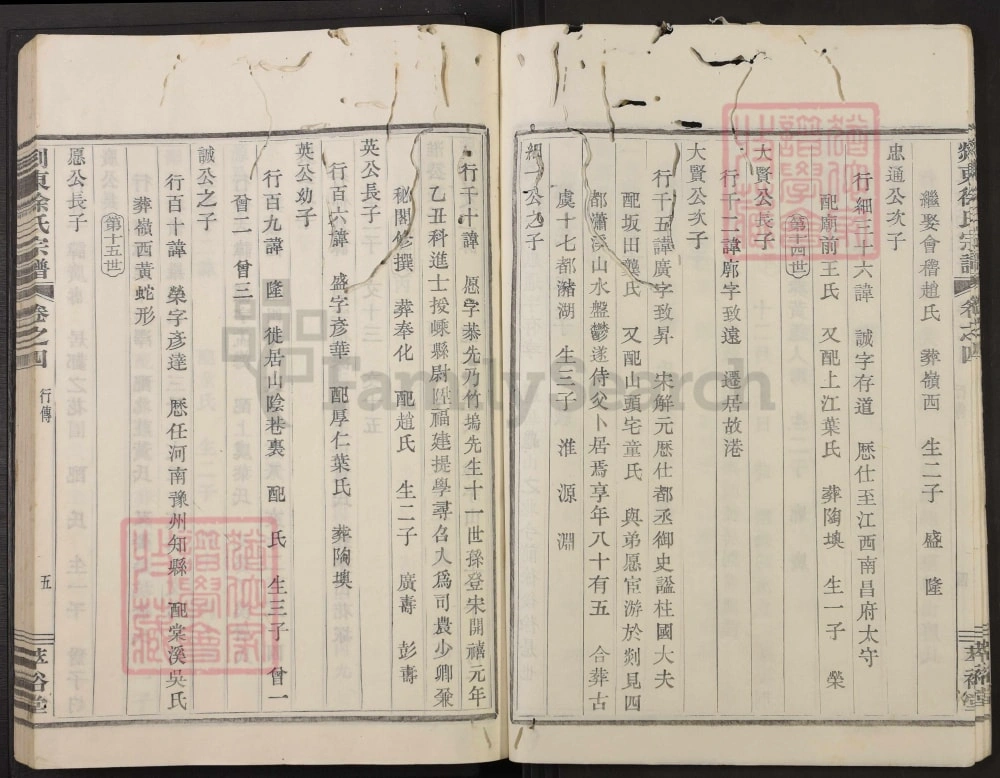 繼娶會稽趙氏 葬嶺西 生二子 盛 隆
忠通公次子
行細三十六諱 誠字存道 歷仕至江西南昌府太守
配廟前王氏 又配上江葉氏 葬陶墺 生一子 榮
第十四世
大賢公長子
行千二諱廓字致遠 遷居故港
大賢公次子
行千五諱廣字致昇 宋解元歷仕都丞御史謚柱國大夫
配坂田龔氏 又配山頭宅童氏 與弟愿宦游於剡見四
都瀟溪山水盤鬱遂侍父卜居焉享年八十有五 合葬古
虞十七都瀦湖 生三子 淮 源 淵
細一公之子
行千十諱 愿字恭先乃竹塢先生十一世孫登宋開禧元年
乙丑科進士授嵊縣尉陞福建提學尋召入為司農少卿兼
秘閣修撰 葬奉化 配趙氏 生二子 廣壽 彭壽
英公長子
行百六諱 盛字彥華 配厚仁葉氏 葬陶墺
英公幼子
行百九諱 隆 徙居山陰巷裏 配 氏 生三子 曾一
曾二 曾三
誠公之子
行百十諱 榮字彥達 歷任河南豫州知縣 配棠溪吳氏
葬嶺西黃蛇形
第十五世
愿公長子
剡東徐氏宗譜 卷之四 行傳 五
FamilySearch